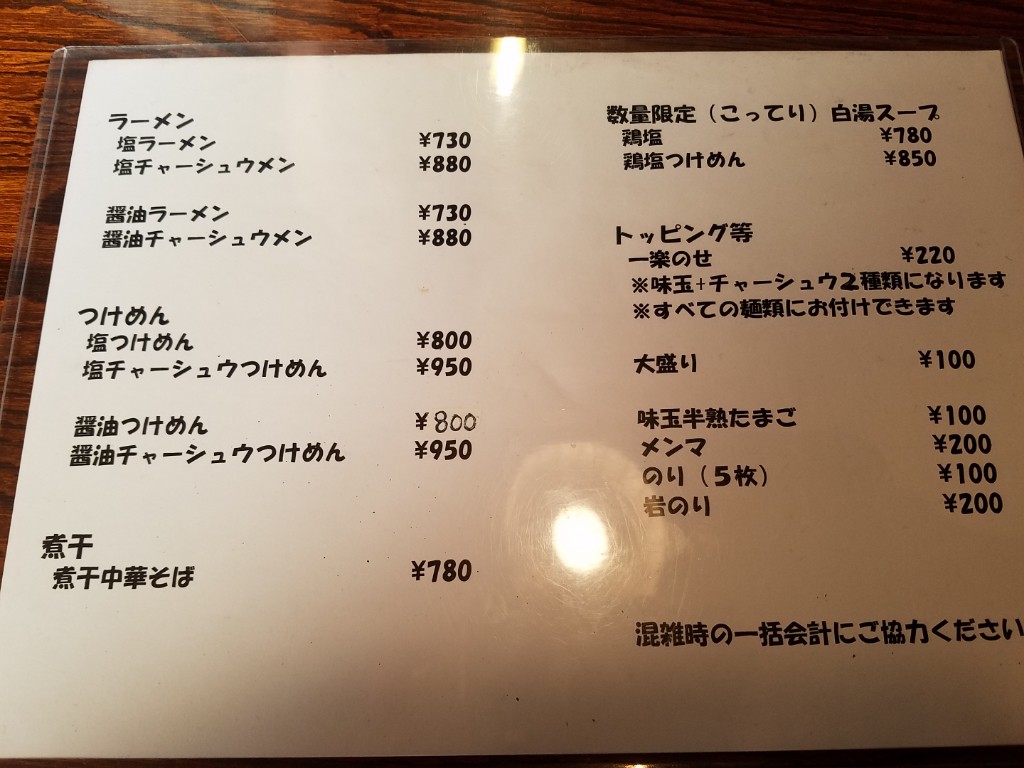 ラーメン
塩ラーメン ¥730
塩チャーシュウメン ¥880
醤油ラーメン ¥730
醤油チャーシュウメン ¥880
つけめん
塩つけめん ¥800
塩チャーシュウつけめん ¥950
醤油つけめん ¥800
醤油チャーシュウつけめん ¥950
煮干
煮干中華そば ¥780
数量限定（こってり）白湯スープ
鶏塩 ¥780
鶏塩つけめん ¥850
トッピング等
一楽のせ ¥220
※味玉+チャーシュウ2種類になります
※すべての麺類にお付けできます
大盛り ¥100
味玉半熟たまご ¥100
メンマ ¥200
のり（5枚） ¥100
岩のり ¥200
混雑時の一括会計にご協力ください